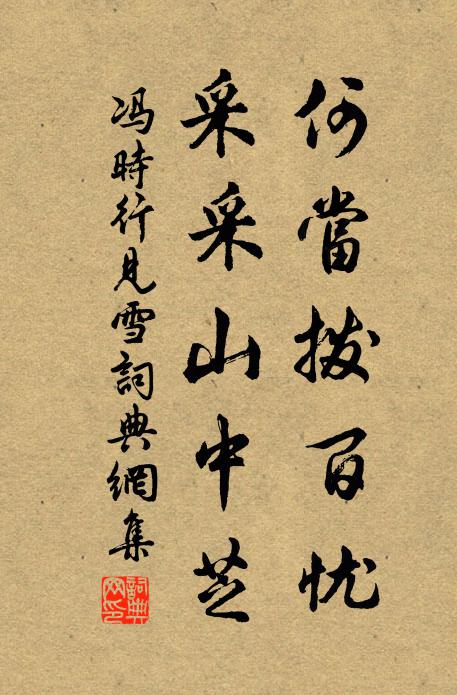 何當拨百忧
采采山中芝
冯時行見雪詞典網集
詞典网印